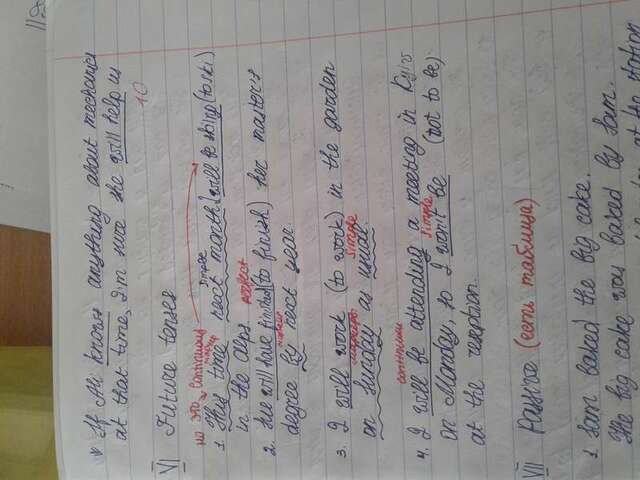 * If Ali knows anything about mechanics
at that time, I'm sure she will help us
10
VI Future tenses
но это continuous
маркер simple
1. This time next month I will be skiing (to ski)
in the Alps.
perfect
2. Sue will have finished (to finish) her master's
маркер
degree by next year.
3. I will work (to work) in the garden
маркеры simple
on Sunday as usual.
continuous
4. I will be attending a meeting in Kyiv
simple
on Monday, so I won't be (not to be)
at the reseption.
VII Passive (есть таблица)
1. Sam baked the big cake.
The big cake was baked by Sam.
at the station